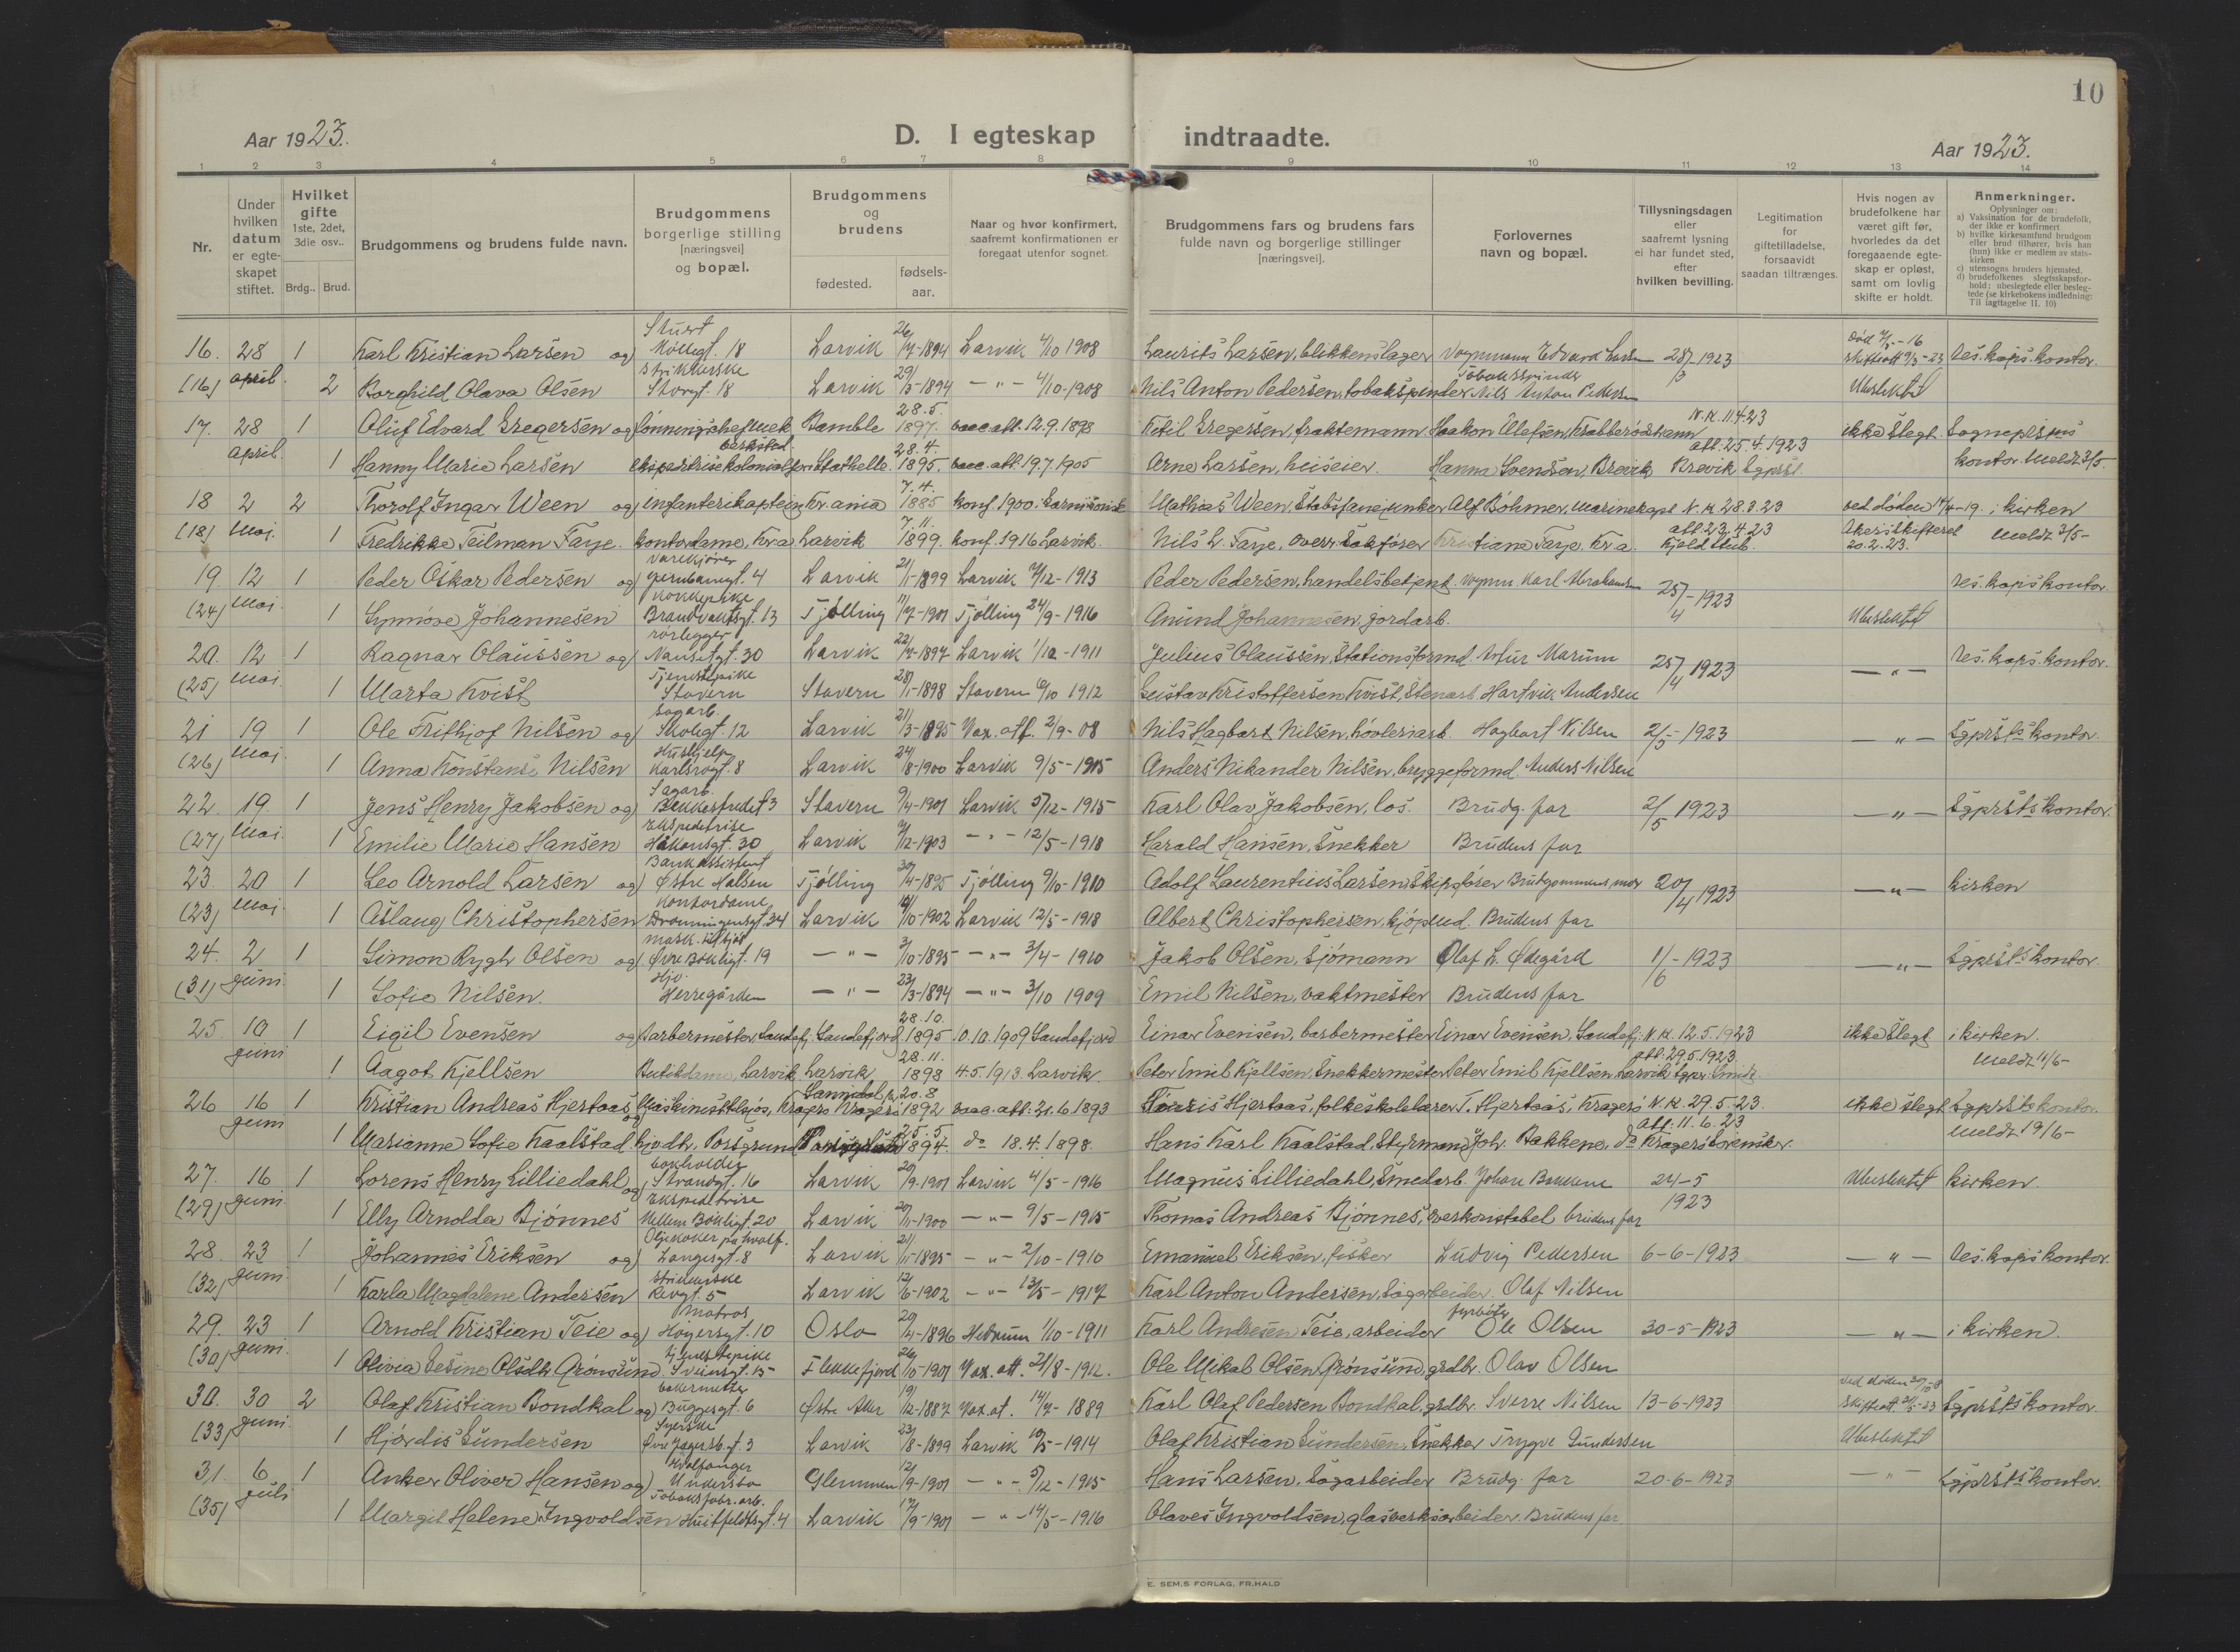 10
Aar 1923.
D. I egteskap indtraadte.
Aar 1923.
1 2 3 4 5 6 7 8 9 10 11 12 13 14
Nr.
Under hvilken datum er egte-skapet stiftet.
Hvilket gifte 1ste, 2det, 3die osv..
Brdg.. Brud.
Brudgommens og brudens fulde navn.
Brudgommens borgerlige stilling [næringsvei] og bopæl.
Brudgommens og brudens
fødested.
fødsels-aar.
Naar og hvor konfirmert, saafremt konfirmationen er foregaat utenfor sognet.
Brudgommens fars og brudens fars fulde navn og borgerlige stillinger [næringsvei].
Forlovernes navn og bopæl.
Tillysningsdagen eller saafremt lysning ei har fundet sted, efter hvilken bevilling.
Legitimation for giftetilladelse, forsaavidt saadan tiltrænges.
Hvis nogen av brudefolkene har været gift før, hvorledes da det foregaaende egte-skap er opløst, samt om lovlig skifte er holdt.
Anmerkninger.
Oplysninger om:
a) Vaksination for de brudefolk, der ikke er konfirmert
b) hvilke kirkesamfund brudgom eller brud tilhører, hvis han (hun) ikke er medlem av stats-kirken
c) utensogns bruders hjemsted.
d) brudefolkenes slegtsskapsfor-hold; ubeslegtede eller besleg-tede (se kirkebokens indledning: Til iagttagelse II. 10)
16. 28 1 Karl Kristian Larsen og Stuert Møllegt. 18 Larvik 26/7-1894 Larvik 4/10 1908 Laurits Larsen, blikkenslager Vognmann Edvard Larsen 28/3-1923 res. kaps. kontor.
(16) april. 2 Borghild Olava Olsen Strikkerske Storgt. 18 Larvik 29/5-1894 -"- 4/10-1908 Nils Anton Pedersen, tobakspinder Nils Anton Pedersen Ubeslektet
17. 28 1 Oluf Edvard Gregersen og Bamble 28.5. 1897. vacc. att. 12.9.1898 Ketil Gregersen, fraktemann. Haakon Olefsen, N.K. 11.4.23 ikke slegt. Sogneprestens
april. 1 Hanny Marie Larsen Stathelle. 28.4. 1895. vacc. att. 19.7.1905 Arne Larsen, huseier. Hanna Svendsen, Brevik att. 25.4.1923 Brevik kontor. Meldt 3/5.
18 2 2 Thorolf Ingar Ween og infanterikaptein Kr.ania 7.4. 1885 konf. 1900. Mathias Ween, Alf Böhmer, N.K. 28.3.23 ved döden 14/4-19. i kirken
(18) Mai. 1 Fredrikke Teilman Faye. kontordame, Kr.a. Larvik 7.11. 1899. konf. 1916 Larvik. Nils L. Faye, overr. sakförer Kristiane Faye, Kr.a. att. 23.4.23 20.2.23. Meldt 3/5-
19. 12 1 Peder Oskar Pedersen og 4 Larvik 21/11-1899 Larvik 7/12-1913 Peder Pedersen, handelsbetjent. Vognm. Karl Abrahamsen 25/4-1923 res. kaps kontor.
(24) Mai. 1 Synnöve Johannesen Kokkepike Brandvaktsgt. 13 Tjölling 11/7-1901 Tjölling 24/9-1916 Anund Johannesen, jordarb. Ubeslektet
20. 12 1 Ragnar Olaussen og rörlegger Nansetgt. 30 Larvik 22/7-1897 Larvik 1/10-1911 Julius Olaussen, Stationsformd. Artur Marum 25/4 1923 -"- res. kaps. kontor.
(25) Mai. 1 Marta Kvist Tjenestepike Stavern Stavern 28/1-1898 Stavern 6/10 1912 Gustav Kristoffersen Kvist, Stenarb. Hartvik Andersen
21 19 1 Ole Frithjof Nilsen og Sagarb. Skolegt. 12 Larvik 21/3-1895 Vax. att. 2/9-08 Nils Hagbart Nilsen, hövleriarb. Hagbart Nilsen 2/5-1923 -"- Sgprsts kontor.
(26) Mai. 1 Anna Konstanse Nilsen Hushjelp Karlsrogt. 8 Larvik 24/8-1900 Larvik 9/5-1915 Anders Nikander Nilsen, bryggeformd. Anders Nilsen
22. 19. 1 Jens Henry Jakobsen og Sagarb. 3 Stavern 9/4-1901 Larvik 5/12-1915 Karl Olav Jakobsen, los. Brudg. far 2/5 1923 -"- Sgprsts kontor.
(27) Mai 1 Emilie Marie Hansen Ekspeditrise Håkonsgt. 30 Larvik /12-1903 -"- 12/5-1918 Harald Hansen, Snekker Brudens far
23. 20 1 Leo Arnold Larsen og Bankassistent Østre Halsen Tjölling 30/4-1895 Tjölling 9/10-1910 Adolf Laurentius Larsen, Skipsförer Brudgommens mor 20/4 1923 -"- kirken
(23) Mai. 1 Aslaug Christophersen Kontordame Dronningensgt. 34 Larvik /10-1902 Larvik 12/5-1918 Albert Christophersen, kjöpmd. Brudens far
24. 2 1 Simon Rygh Olsen og Øvre Bökeligt. 19 -"- 3/10-1895 -"- 3/4-1910 Jakob Olsen, Sjömann Olaf L. Ødegård 1/6-1923 -"- Sgprsts kontor.
(31) juni. 1 Sofie Nilsen. Hjv. Herregården -"- 23/3-1894 -"- 3/10 1909 Emil Nilsen, vaktmester Brudens far
25. 10 1 Eigil Evensen og barbermester, Sandefj. Sandefjord 28.10. 1895 0.10.1909 Sandefjord Einar Evensen, barbermester Einar Evensen, Sandefj. N.K. 12.5.1923 ikke slegt i kirken.
juni 1 Aagot Kjellsen Butikdame, Larvik Larvik 28.11. 1898 4.5.1913. Larvik. Peter Emil Kjellsen, Snekkermester Peter Emil Kjellsen, Larvik att. 29.5.1923. Meldt 11/6-
26 16 1 Kristian Andreas Hjertaas og Kragerø 20.8 1892 vacc. att. 21.6.1893 Hjertaas, folkeskolelærer T. Hjertaas, Kragerö N.K. 29.5.23. ikke slegt Sgprsts kontor.
juni 1 Marianne Sofie Kaalstad hjv. dtr. Porsgrund 25.5 1894. do 18.4.1898. Hans Karl Kaalstad, Styrmand Joh. Bakkene, do att. 11.6.23 Meldt 19/6-
27. 16 1 Lorens Henry Lilliedahl og bokholder Strandgt. 16 Larvik 20/9-1901 Larvik 4/5-1916 Magnus Lilliedahl, Smedarb. Johan Bakkene 24-5 1923 Ubeslektet kirken.
(29) juni. 1 Elly Arnolda Bjönnes Ekspeditrise Mellem Bökeligt. 20 Larvik 20/11-1900 -"- 9/5-1915 Thomas Andreas Bjönnes, overkonstabel brudens far
28. 23 1 Johannes Eriksen og Oljekoker på hvalf. Langesgt. 8 Larvik 21/11-1895 -"- 2/10-1910 Emanuel Eriksen, fisker Ludvig Pedersen 6-6-1923 -"- res. kaps kontor.
(32) juni. 1 Karla Magdalene Andersen Strikkerske Revgt. 5 Larvik 12/6-1902 -"- 13/5-1917 Karl Anton Andersen, Sagarbeider. Olaf Nilsen
29. 23 1 Arnold Kristian Teie og Matros Höyersgt. 10 Oslo 20/4-1896 Hedrum 1/10-1911 Karl Andresen Teie, arbeider fyrböter Ole Olsen 30-5-1923 -"- i kirken.
(30) juni. 1 Olivia Sesine Olsdtr Grönsund Tjenestepike Sveinsgt. 15 Flekkefjord 26/10-1901 Vax. att. 21/8-1912. Ole Mikal Olsen Grönsund, grdbr. Olav Olsen
30. 30 2 Olaf Kristian Bondkal og bakermester Buggesgt. 6 Østre Aker 19/12-1887 Vax. at. 14/7-1889 Karl Olaf Pedersen Bondkal, grdbr. Sverre Nilsen 13-6-1923 Sgprsts kontor.
(33) juni. 1 Hjördis Gundersen Syerske Øvre Jegersb.gt. 3 Larvik 23/8-1899 Larvik 10/5-1914 Olaf Kristian Gundersen, Snekker Trygve Gundersen Ubeslektet
31. 6 1 Anker Oliver Hansen og Hvalfanger Undersbo Glemmen 12/9-1901 -"- 5/12-1915 Hans Larsen, Sagarbeider Brudg. far 20-6-1923 -"- Sgprsts kontor.
(35) juli 1 Margit Helene Ingvoldsen Tobaksfabr. arb. Huitfeldtsgt. 4 Larvik 17/9-1901 -"- 14/5-1916 Olaves Ingvoldsen, glasverksarbeider. Brudens far
E. SEM,S FORLAG, FR.HALD